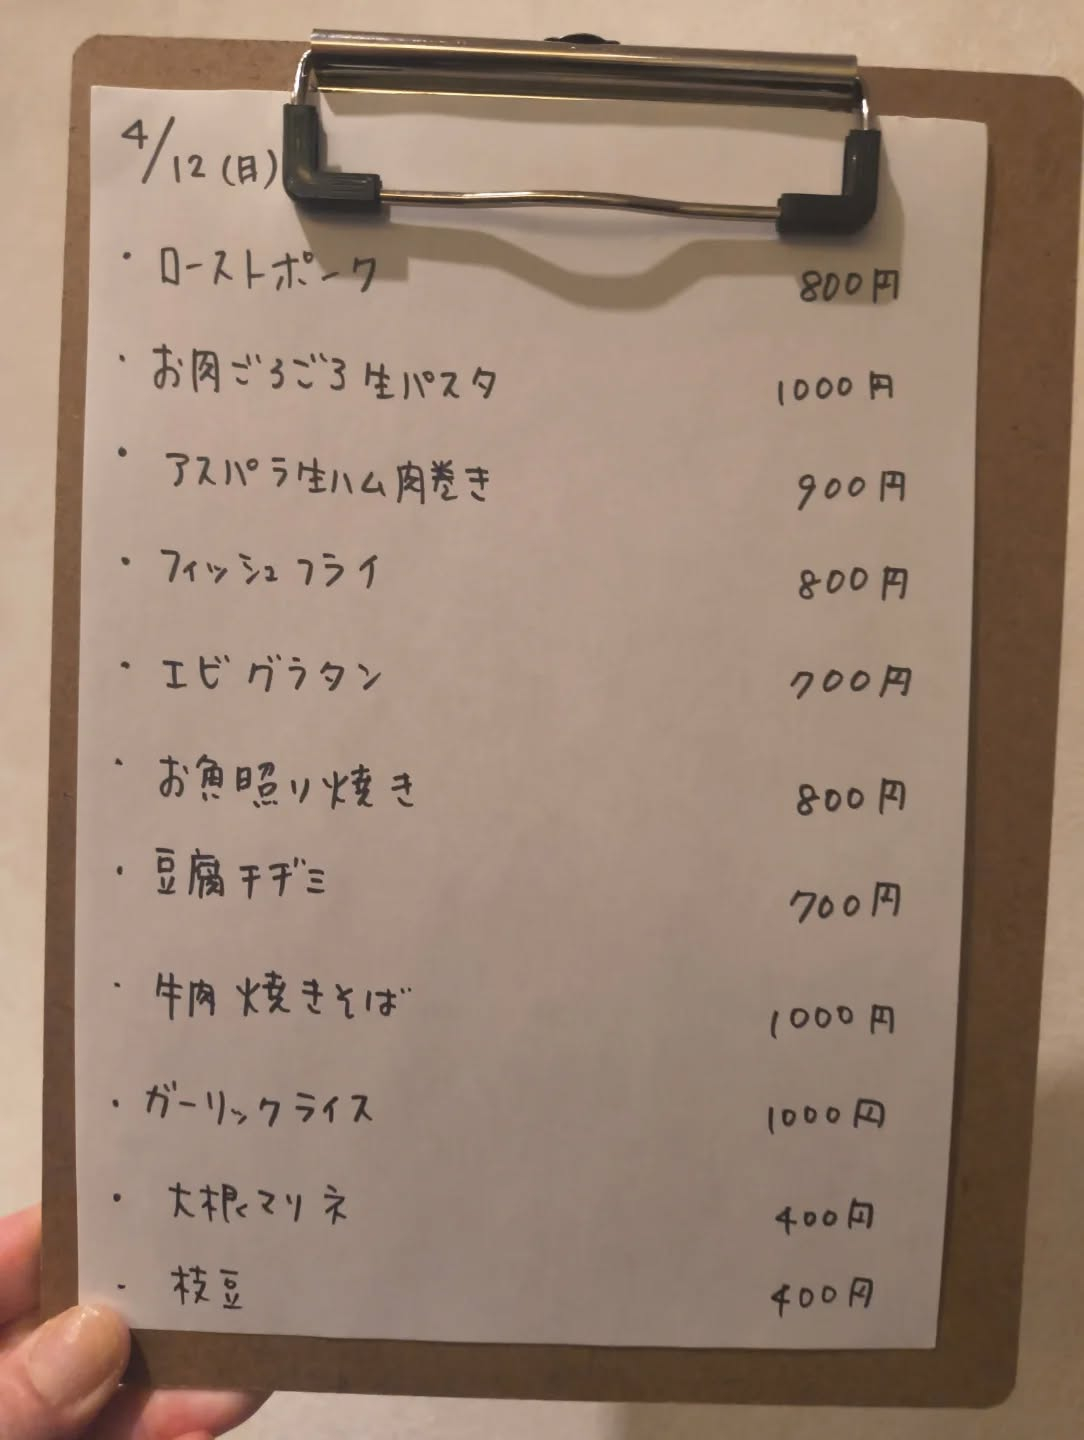 4/12(日)
・ローストポーク 800円
・お肉ごろごろ生パスタ 1000円
・アスパラ生ハム肉巻き 900円
・フィッシュフライ 800円
・エビグラタン 700円
・お魚照り焼き 800円
・豆腐チヂミ 700円
・牛肉焼きそば 1000円
・ガーリックライス 1000円
・大根マリネ 400円
・枝豆 400円